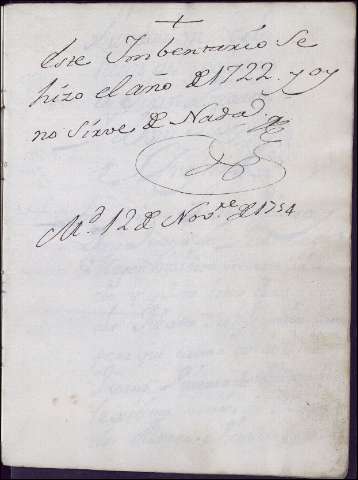 Este Imbentario se
hizo el año d 1722. y oy
no sirve d Nada.
M.d 12 d Nov.re d 1754